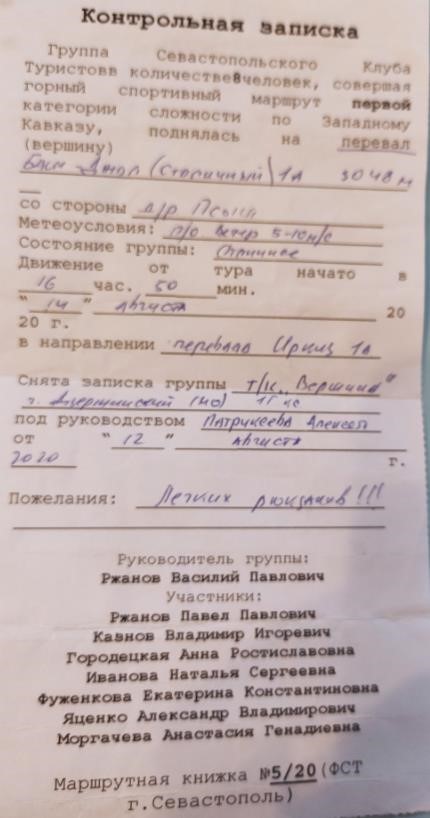 Контрольная записка
Группа Севастопольского Клуба
Туристовв количестве8человек, совершая
горный спортивный маршрут первой
категории сложности по Западному
Кавказу, поднялась на перевал
(вершину)
Джол (Столичный) 1А 3048 м
со стороны д/р Псыш
Метеоусловия: п/о ветер 5-10м/с
Состояние группы: отличное
Движение от тура начато в
16 час. 50 мин.
"14" Августа 20
20 г.
в направлении перевала Иркиз 1А
Снята записка группы т/к "Вершина"
г. Дзержинский (МО) 1г кс
под руководством Патрикеева Алексея
от "12" Августа
2020 г.
Пожелания: Легких рюкзаков!!!
Руководитель группы:
Ржанов Василий Павлович
Участники:
Ржанов Павел Павлович
Казнов Владимир Игоревич
Городецкая Анна Ростиславовна
Иванова Наталья Сергеевна
Фуженкова Екатерина Константиновна
Яценко Александр Владимирович
Моргачева Анастасия Генадиевна
Маршрутная книжка №5/20(ФСТ
г.Севастополь)